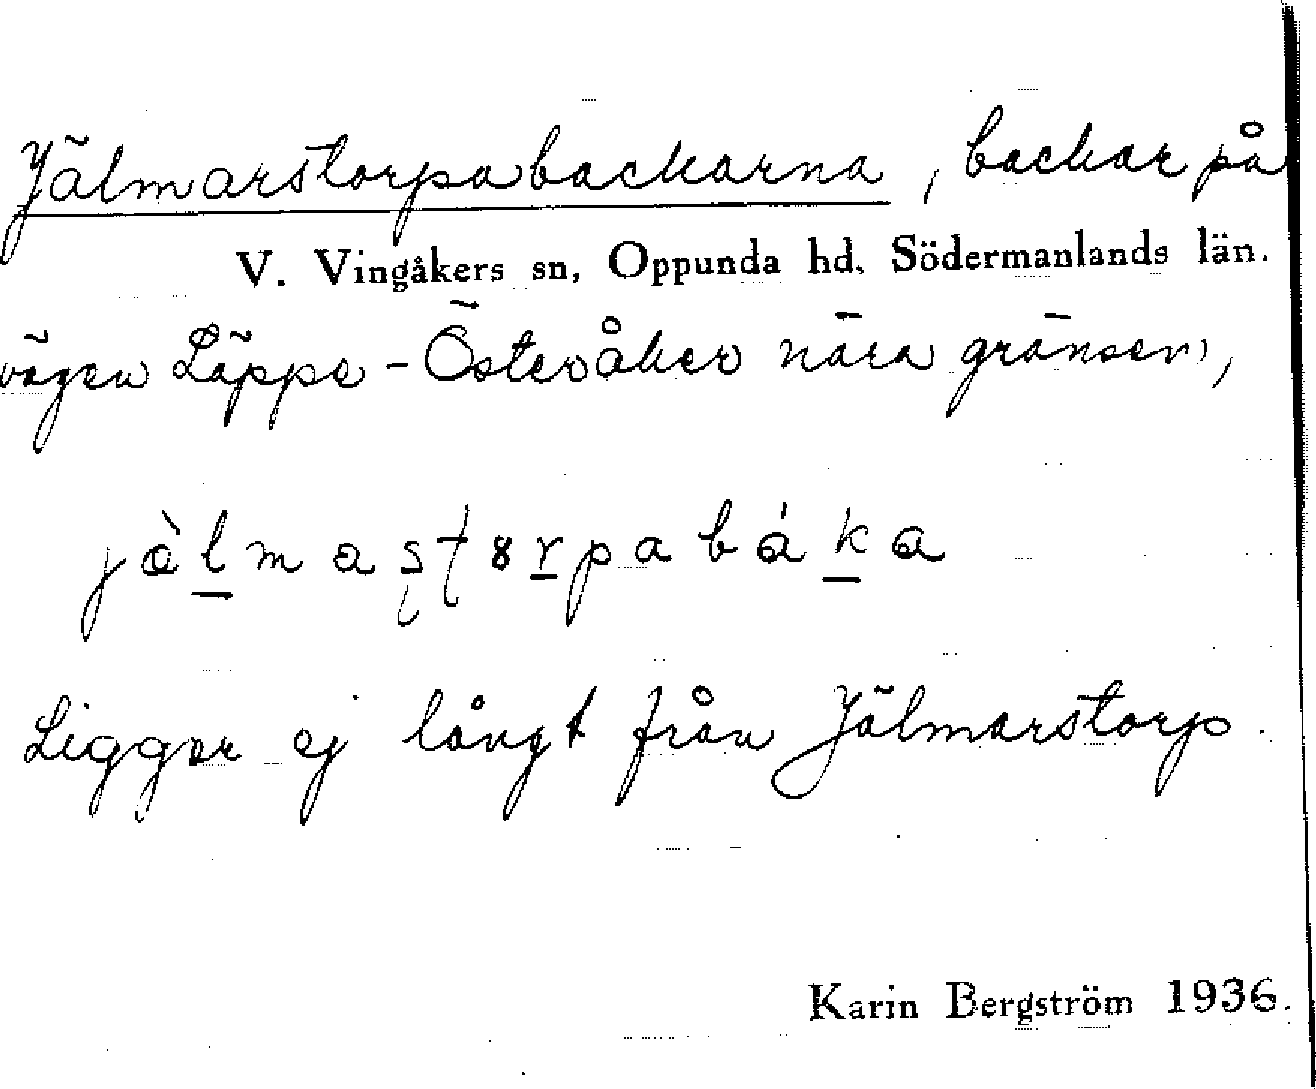 Jälmarstorpabackarna, backar på
V. Vingåkers sn, Oppunda hd, Södermanlands län.
vägen Läppe - Österåker nära gränsen,
jàlmaʂʈɞrpabáka
Ligger ej långt från Jälmarstorp.
Karin Bergström 1936.